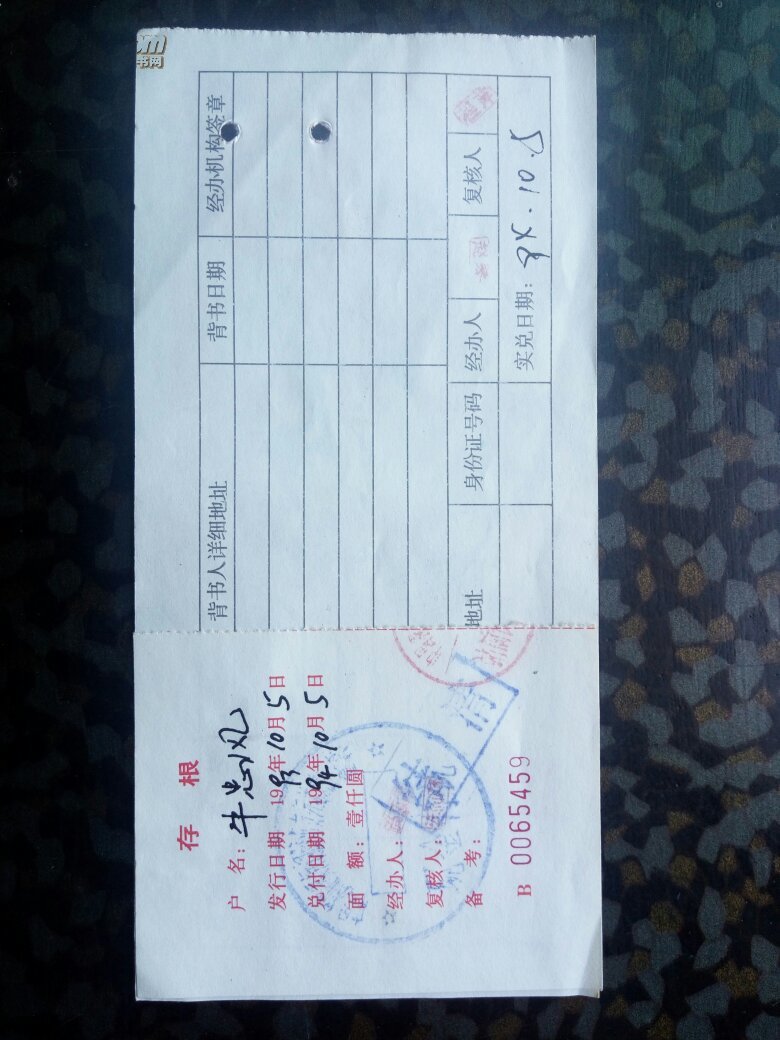 书网
背书人详细地址 背书日期 经办机构签章
地址 身份证号码 经办人 复核人
实兑日期: 94.10.5
存根
户 名: 牛忠凤
发行日期 1993年10月5日
兑付日期 1994年10月5日
面 额: 壹仟圆
经办人:
复核人:
备 考:
B 0065459